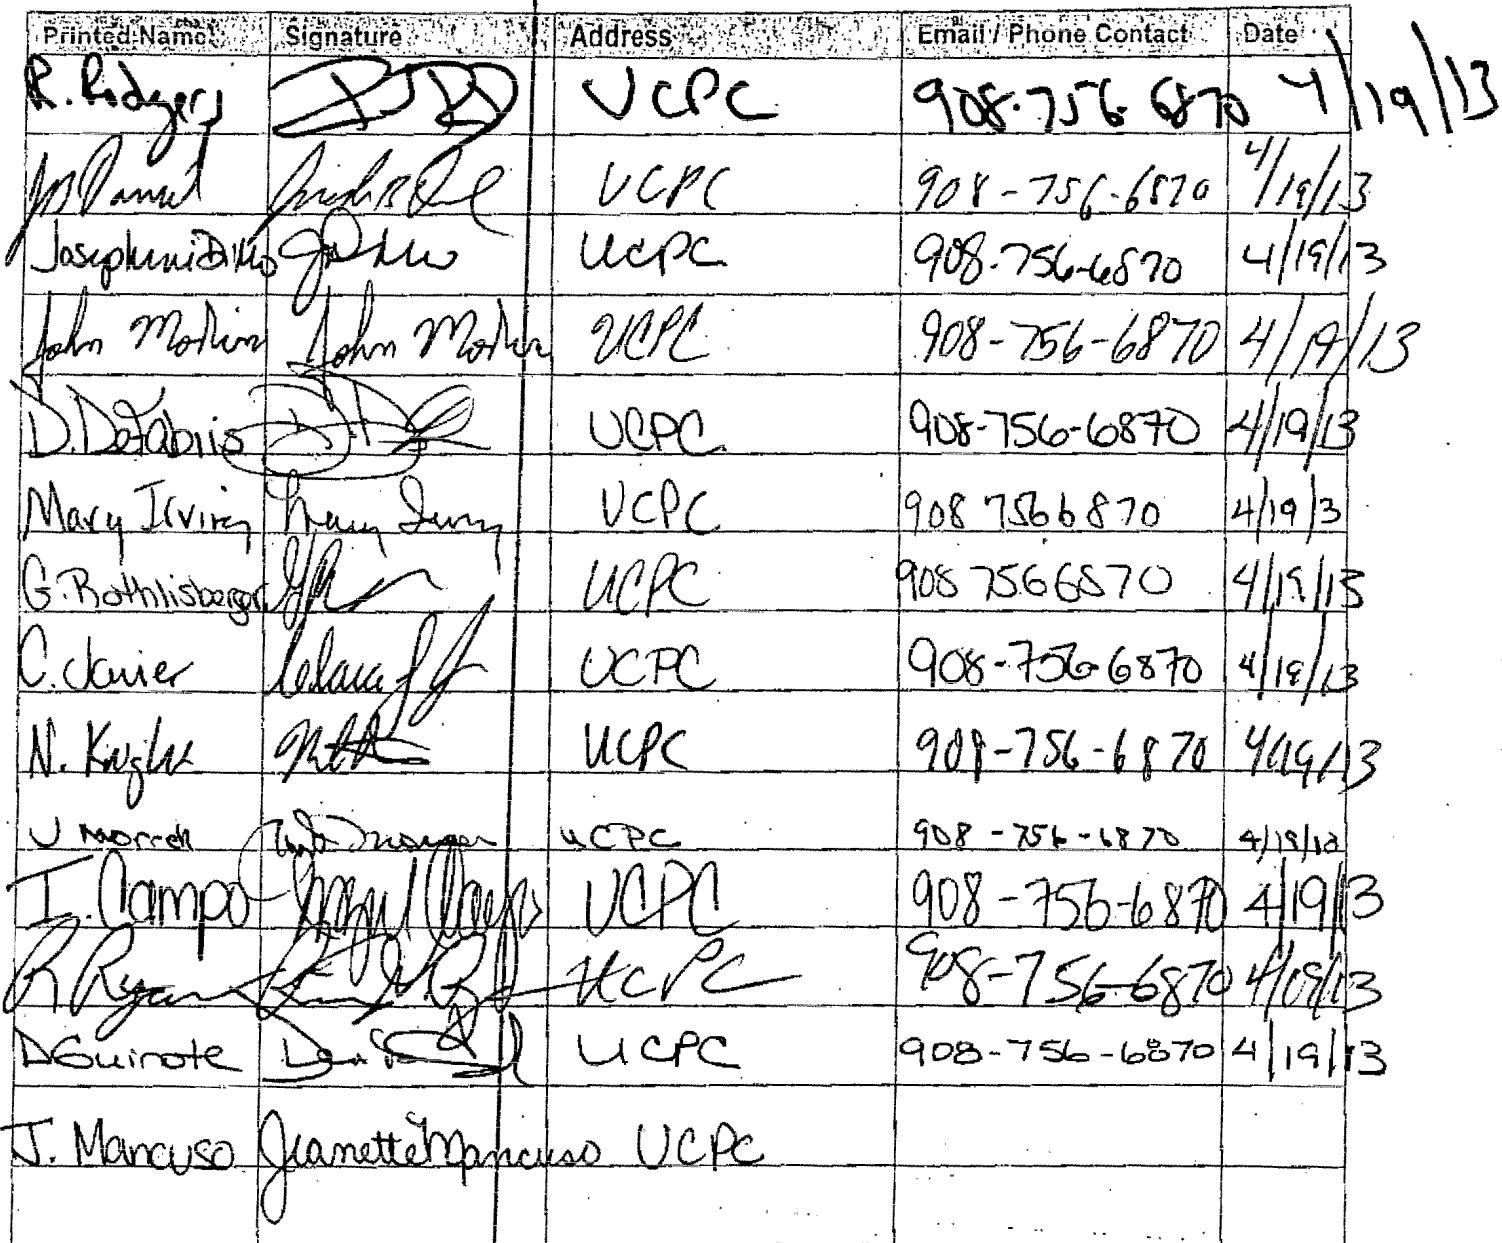 Printed Name Signature Address Email / Phone Contact Date
R. Rodgers UCPC 908-756-6870 4/19/13
UCPC 908-756-6870 4/19/13
UCPC 908-756-6870 4/19/13
John John UCPC 908-756-6870 4/19/13
D. DeFabiis UCPC 908-756-6870 4/19/13
Mary Irving Mary Irving UCPC 908 756 6870 4/19/3
G. Rothlisberger UCPC 908 756 6870 4/19/13
C. Javier UCPC 908-756-6870 4/19/13
N. Knight UCPC 908-756-6870 4/19/13
UCPC 908-756-6870 4/19/13
I. Campo UCPC 908-756-6870 4/19/13
R Ryan UCPC 908-756-6870 4/19/13
D Guinote UCPC 908-756-6870 4/19/13
J. Mancuso Jeanette Mancuso UCPC